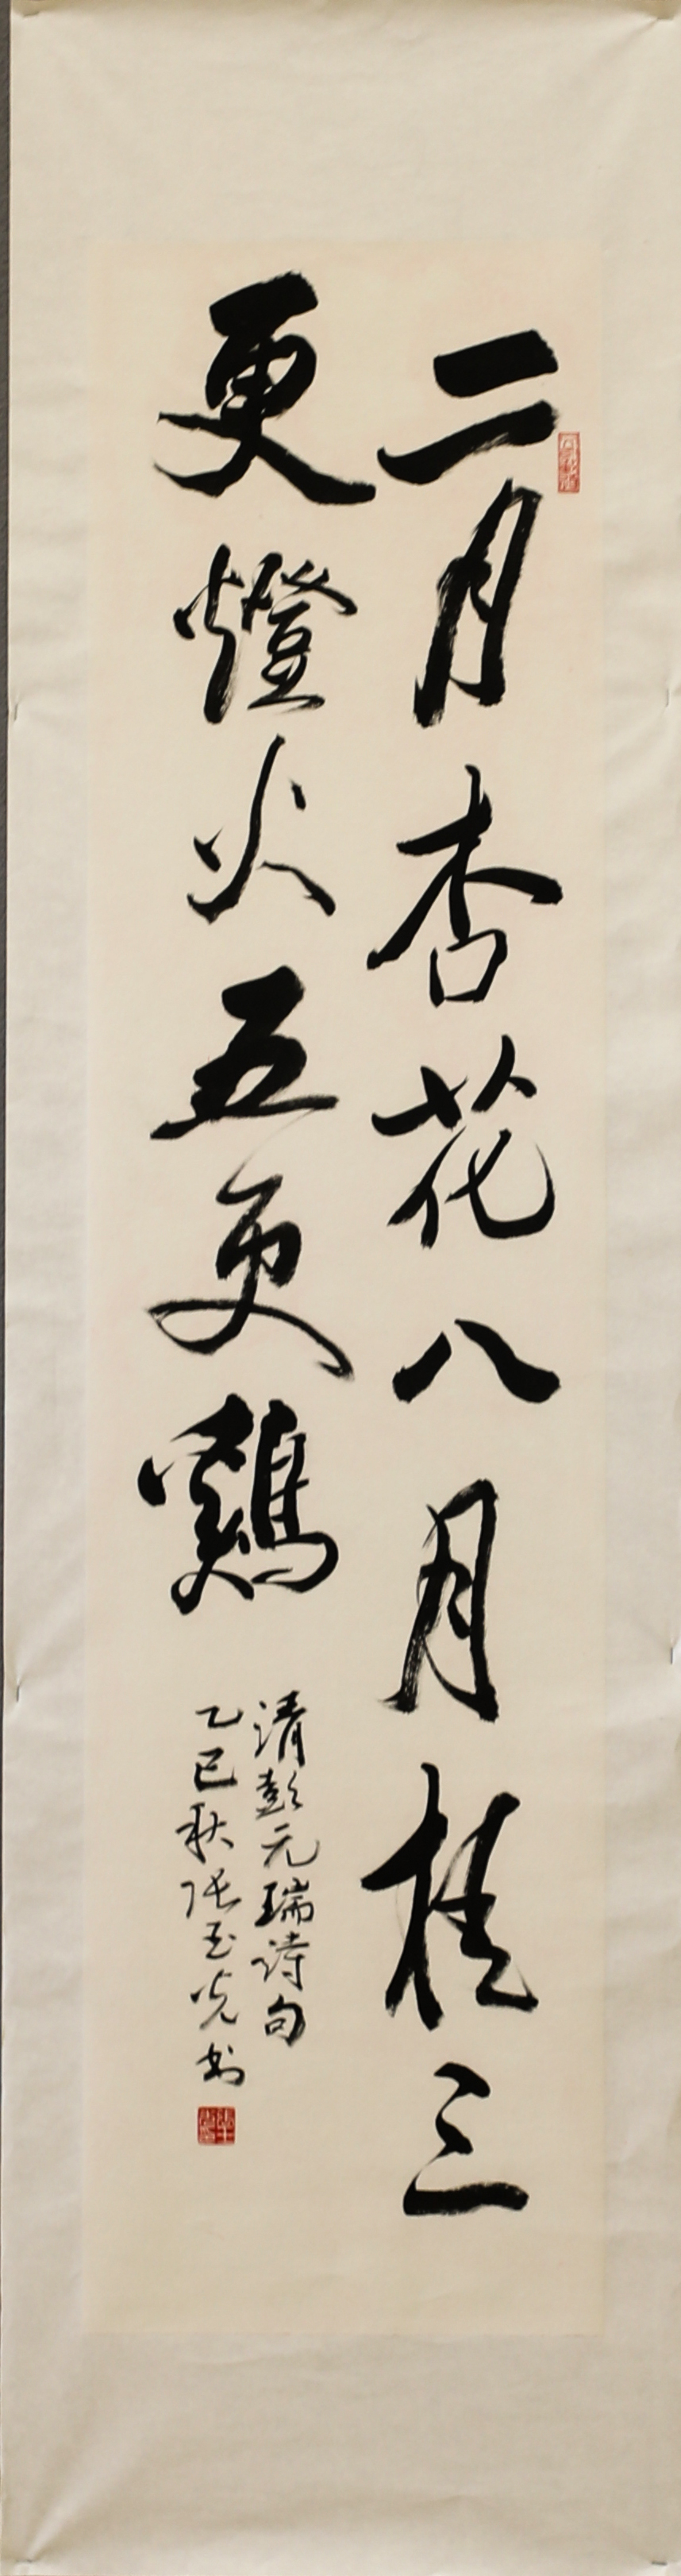 二月杏花八月桂三
更燈火五更鷄
清彭元瑞詩句
乙巳秋张玉光书